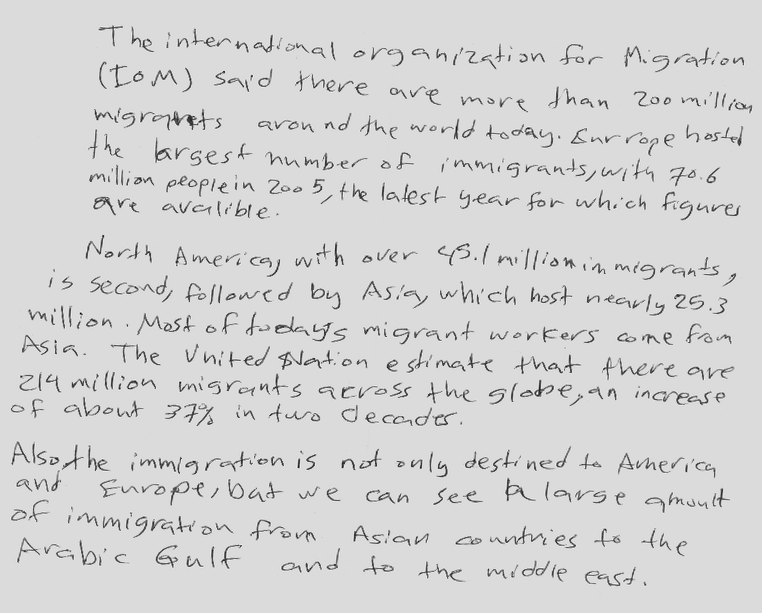 The international organization for Migration
(IOM) said there are more than 200 million
migrants around the world today. Eurrope hosted
the largest number of immigrants, with 70.6
million people in 2005, the latest year for which figures
are avalible.
North America, with over 45.1 million inmigrants,
is second, followed by Asia, which host nearly 25.3
million. Most of today's migrant workers come from
Asia. The United Nation estimate that there are
214 million migrants across the globe, an increase
of about 37% in two decades.
Also, the immigration is not only destined to America
and Europe, but we can see a large amoult
of immigration from Asian countries to the
Arabic Gulf and to the middle east.